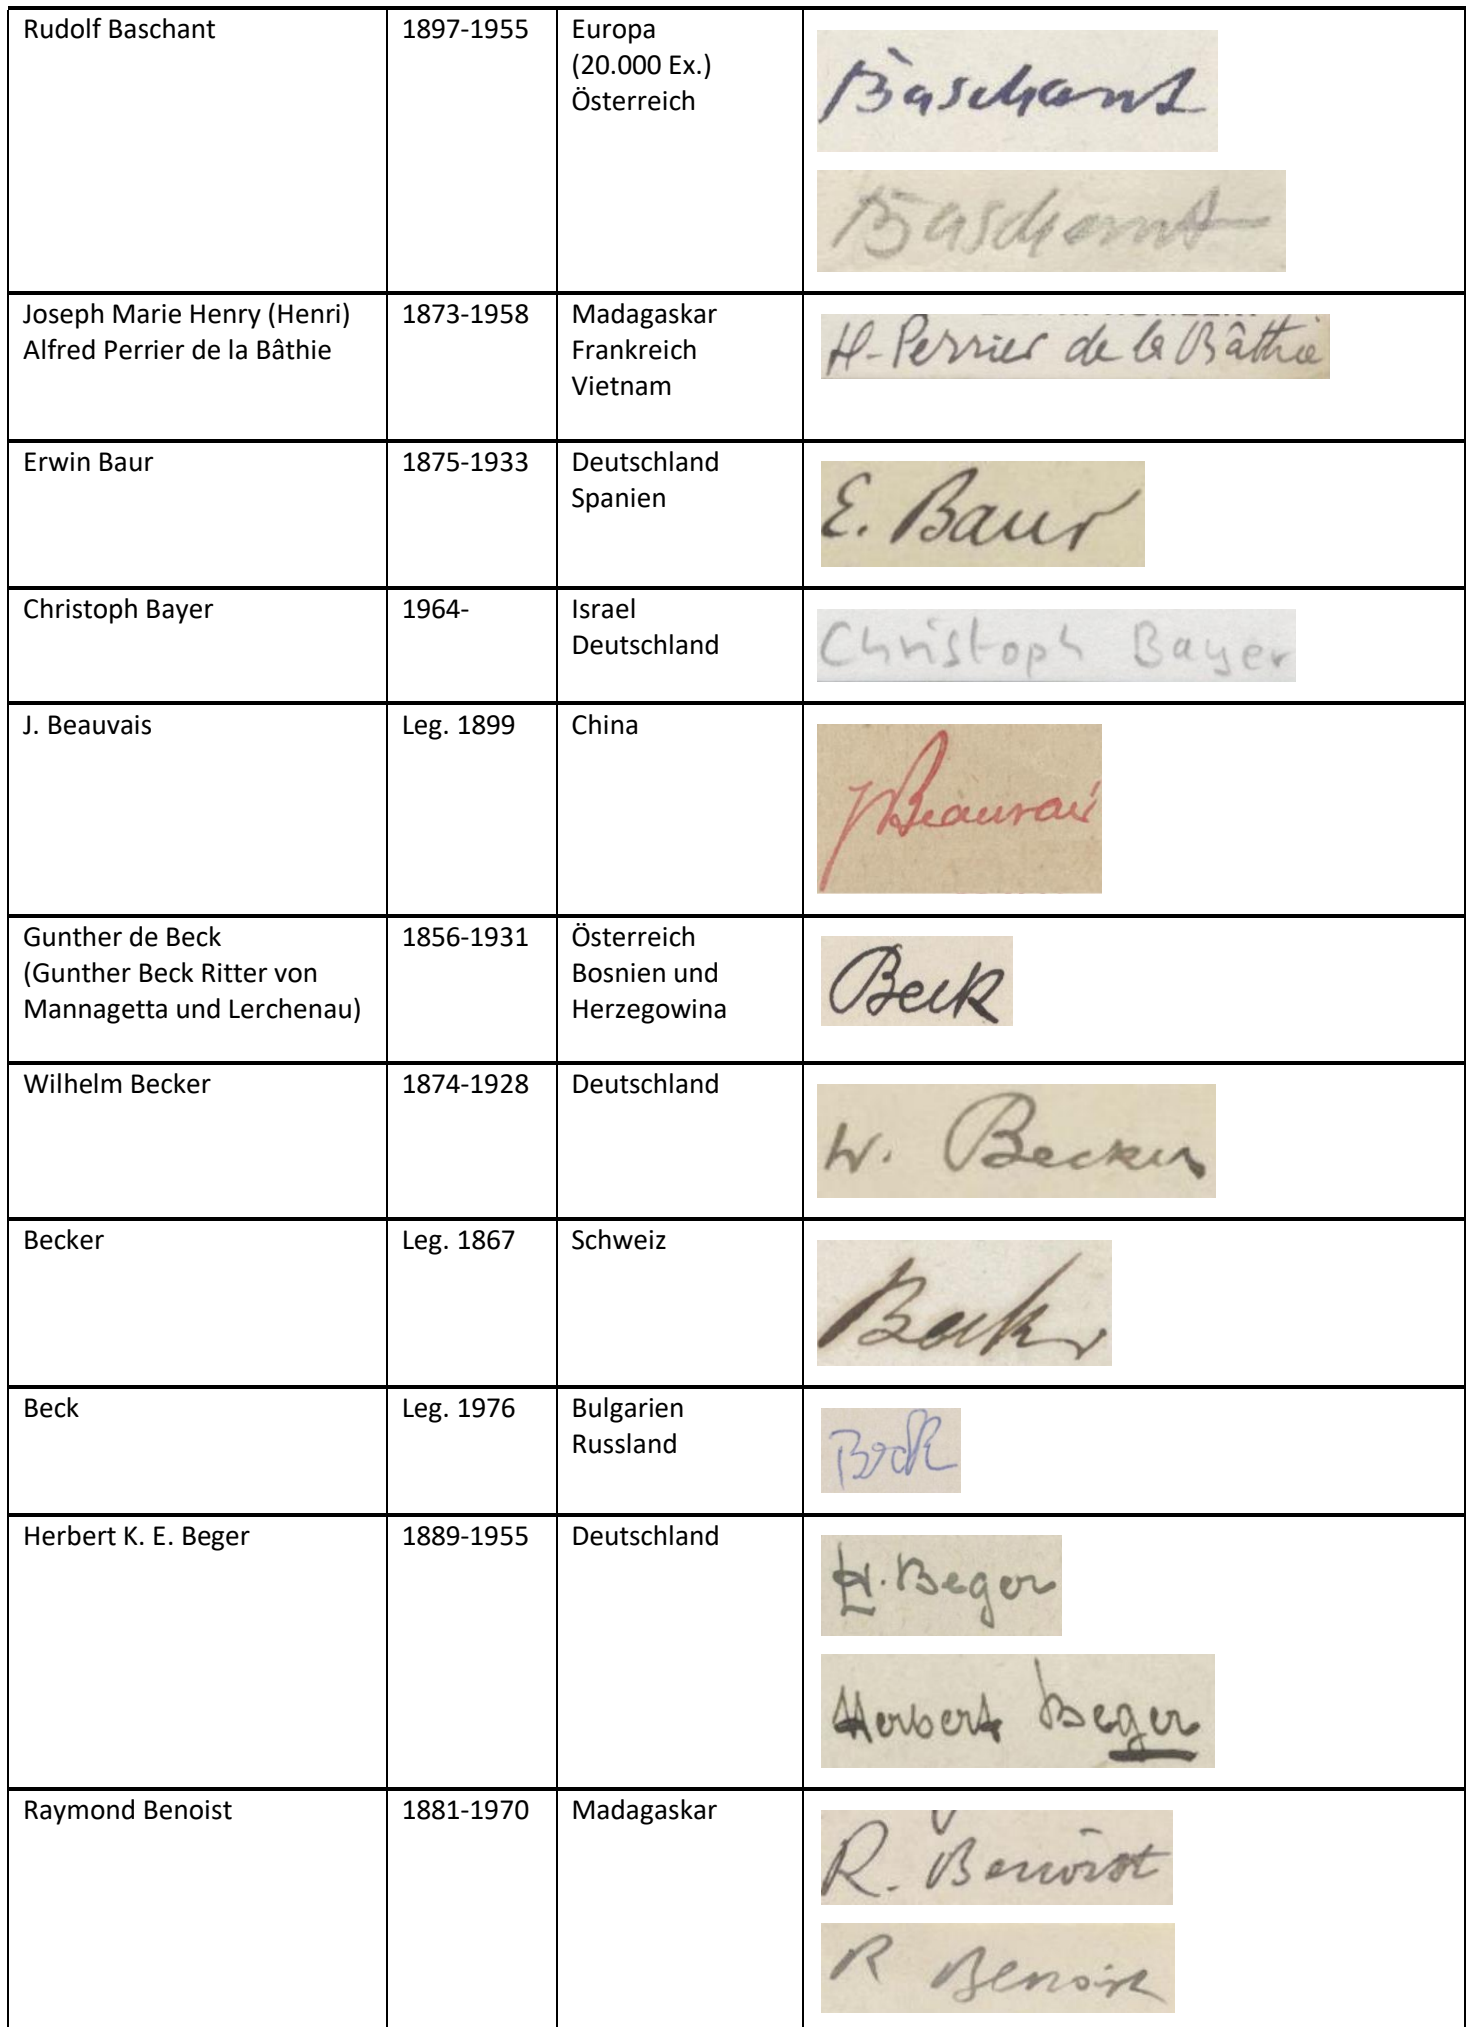 Rudolf Baschant
1897-1955
Europa
(20.000 Ex.)
Österreich
Baschant
Baschant
Joseph Marie Henry (Henri)
Alfred Perrier de la Bâthie
1873-1958
Madagaskar
Frankreich
Vietnam
H-Perrier de la Bâthie
Erwin Baur
1875-1933
Deutschland
Spanien
E. Baur
Christoph Bayer
1964-
Israel
Deutschland
Christoph Bayer
J. Beauvais
Leg. 1899
China
J Beauvais
Gunther de Beck
(Gunther Beck Ritter von
Mannagetta und Lerchenau)
1856-1931
Österreich
Bosnien und
Herzegowina
Beck
Wilhelm Becker
1874-1928
Deutschland
W. Becker
Becker
Leg. 1867
Schweiz
Becker
Beck
Leg. 1976
Bulgarien
Russland
Beck
Herbert K. E. Beger
1889-1955
Deutschland
H. Beger
Herbert Beger
Raymond Benoist
1881-1970
Madagaskar
R. Benoist
R Benoist